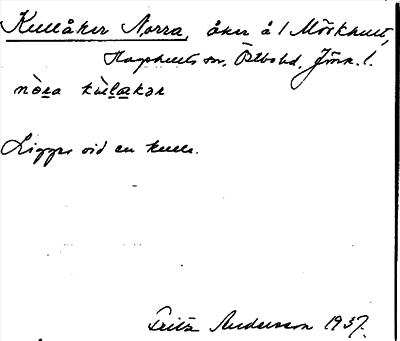 Kullåker Norra, åker å/ Mörkhult,
Hagshults sn, Östbo hd, Jönk. l.
nò̱ra kùlạkər
Ligger vid en kulle.
Fritz Andersson 1937.